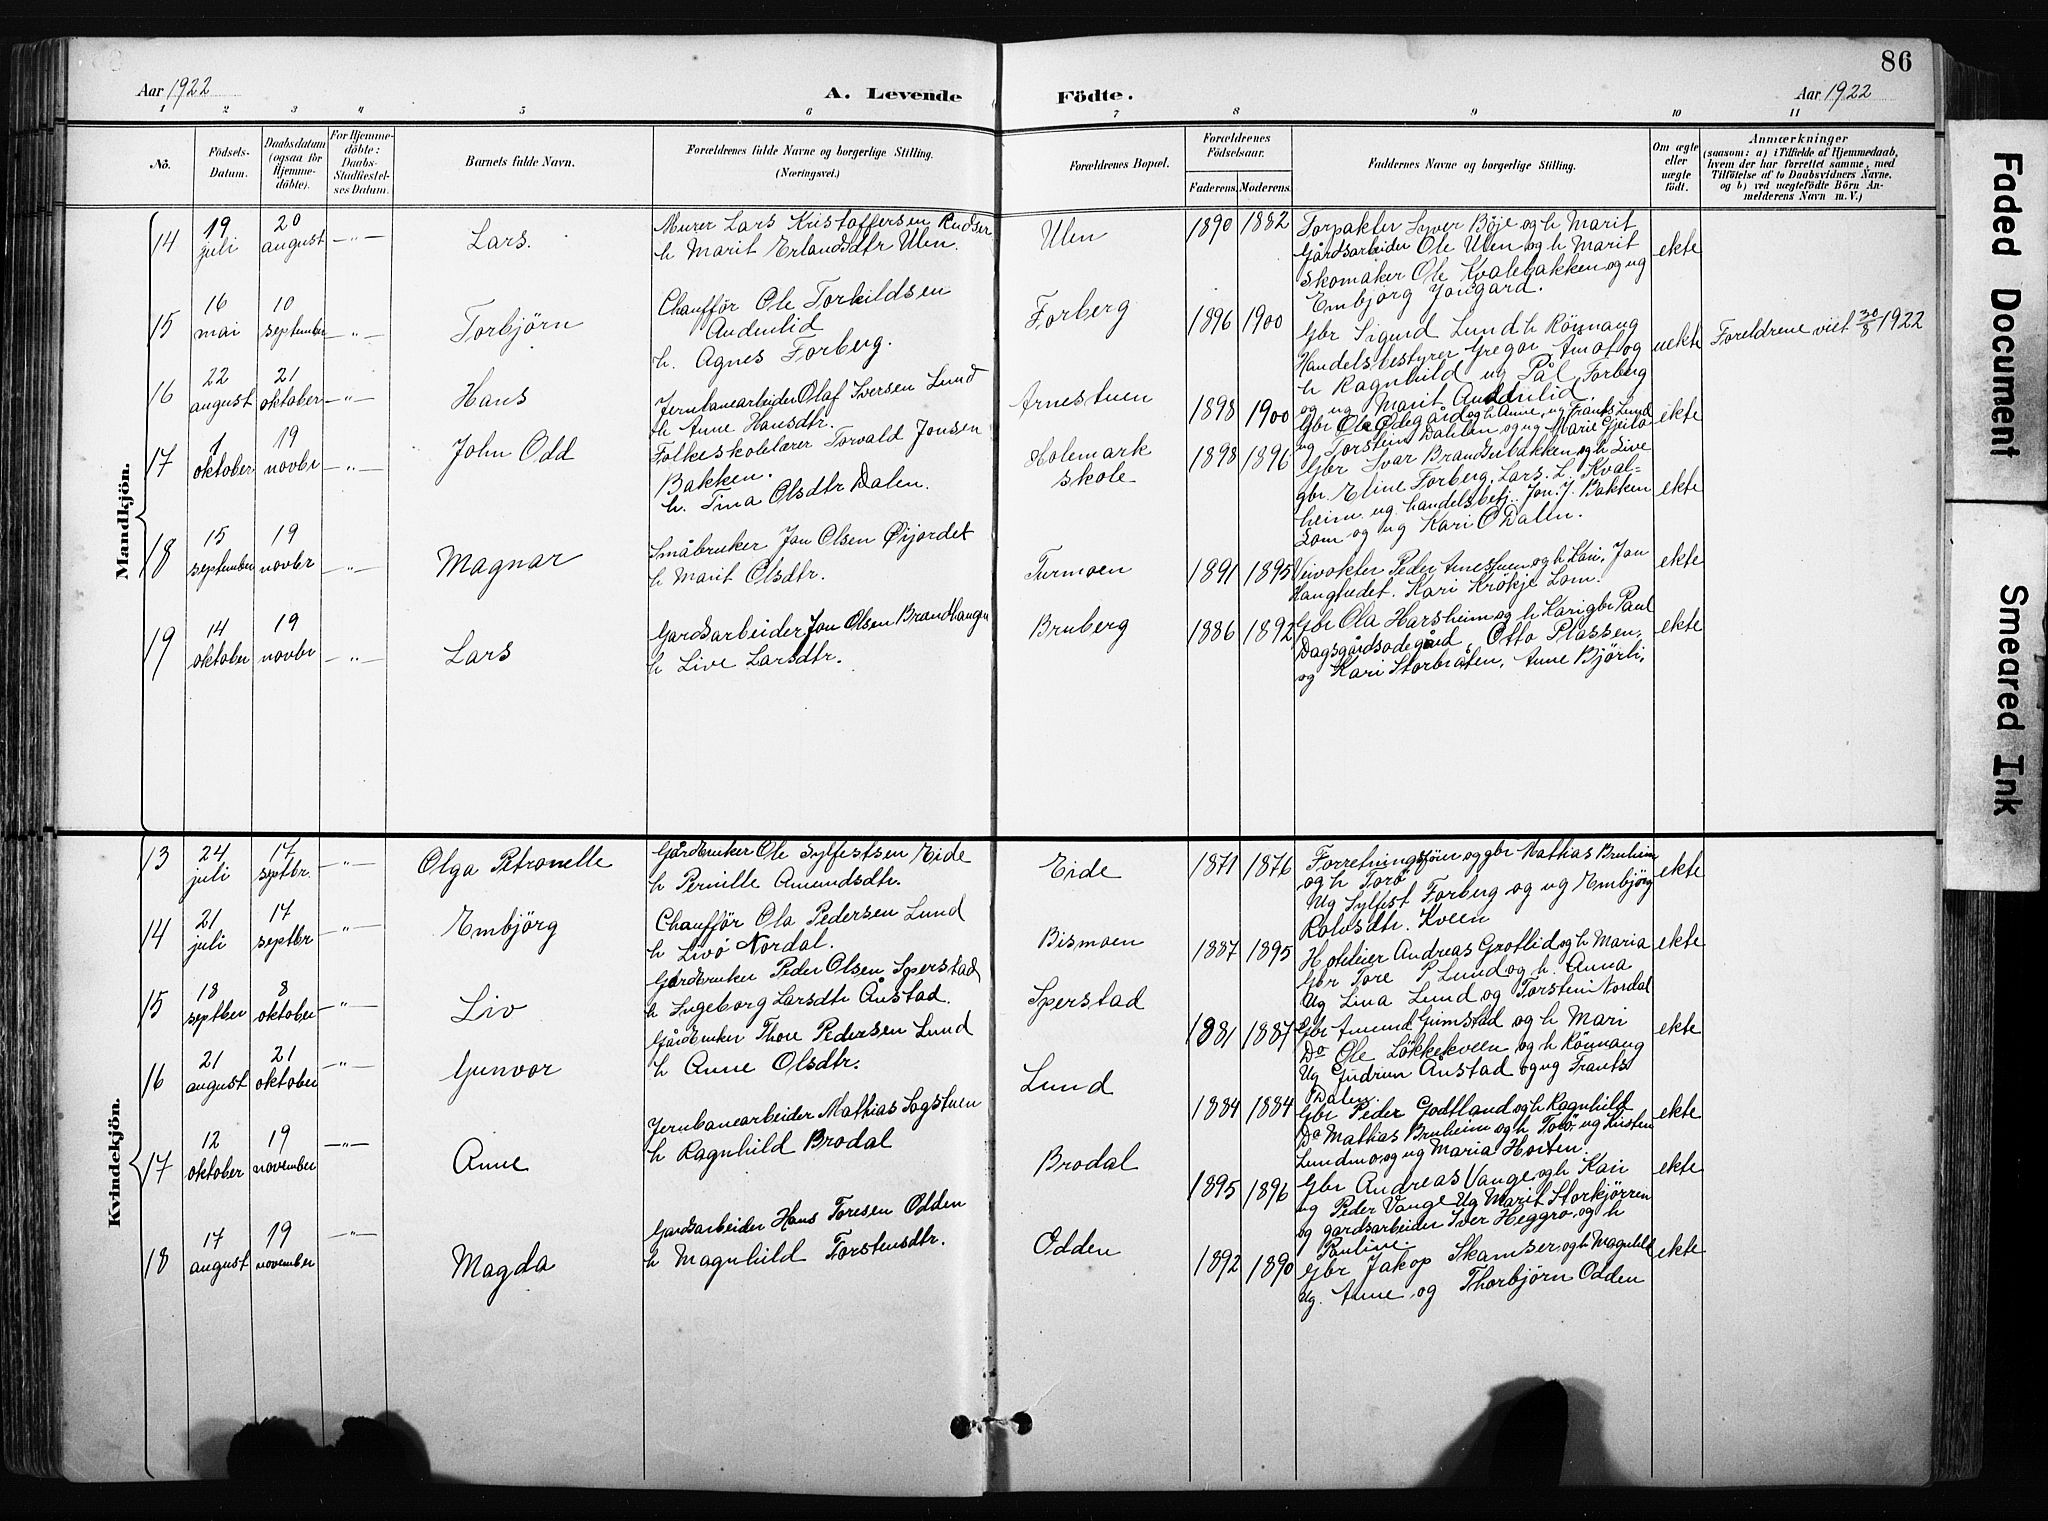 86
Aar 1922
A. Levende Födte.
Aar 1922
1 2 3 4 5 6 7 8 9 10 11
No.
Födsels-Datum.
Daabsdatum (ogsaa for Hjemme-döbte).
For Hjemme-döbte: Daabs-Stadfæstelses Datum.
Barnets fulde Navn.
Forældrenes fulde Navne og borgerlige Stilling.
(Næringsvei.)
Forældrenes Bopæl.
Forældrenes Födselsaar.
Faderens. Moderens.
Faddernes Navne og borgerlige Stilling.
Om ægte eller uægte födt.
Anmærkninger
(saasom: a) i Tilfælde af Hjemmedaab,
hvem der har forrettet samme, med
Tilföielse af to Daabsvidners Navne,
og b) ved uægtefödte Börn An-
melderens Navn m. V.)
Mandkjön.
14 19 juli 20 august —"— Lars.
Murer Lars Kristoffersen
h Marit Erlandsdtr Ulen.
Ulen 1890 1882
Gårdsarbeider Ole Ulen og h Marit
Skomaker Ole Kvalebakken og ug
Embjörg
ekte
15 16 mai 10 september —"— Torbjörn
Chaufför Ole Torkildsen
Andenlid
h. Agnes Forberg.
Forberg 1896 1900
Gbr Sigurd Lund h Rönnaug
Handelsbestyrer Gregor Åmot og
h Ragnhild ug Pål Forberg
og ug Marit Andenlid.
uekte
Foreldrene viet 30/8 1922
16 22 august 21 oktober —"— Hans
Jernbanearbeider Olaf Iversen Lund
h Anne Hansdtr.
Arnestuen 1898 1900
Gbr Ole Ödegård og h Anne, ug Frants Lund
ug Torstein Dahlen og ug Marie Gjeilo
ekte
17 1 oktober 19 novbr —"— John Odd
Folkeskolelærer Torvald Jonsen
Bakken.
h. Tina Olsdtr Dalen.
Holemark
skole 1898 1896
Gbr Ivar Brandsarbakken og h Live
gbr Eline Forberg, Lars L. Kval-
heim ug. handelsbetj. Jon J. Bakken
Lom og ug Kari O Dalen.
ekte
18 15 september 19 novbr —"— Magnar
Småbruker Jon Olsen Öijordet
h Marit Olsdtr.
Turmoen 1891 1895
Veivokter Peder Arnestuen og h Kari, Jon
Kari Krökje Lom.
ekte
19 14 oktober 19 novbr —"— Lars
Gardsarbeider Jon Olsen Brandhaugen
h Live Larsdtr.
Bruberg 1886 1892
Gbr Ola Harsheim og h Kari gbr Paul
Dagsgårdsödegård, Otto Plassen,
og Kari Storbråten, Anne Björli,
ekte
Kvindekjön.
13 24 juli 17 septbr. —"— Olga Petronelle
Gårdbruker Ole Sylfestsen Eide
h Pernille Amundsdtr.
Eide 1871 1876
Forretningsförer og gbr Mathias Bruheim
og h Torö
Ug Sylfest Forberg og ug Embjörg
Rolvsdtr. Kveen
ekte
14 21 juli 17 septbr —"— Embjörg
Chaufför Ola Pedersen Lund
h Livö Nordal.
Bismoen 1887 1895
Hoteleier Andreas Grotlid og h Maria
Gbr Tore P Lund og h. Anna
Ug Lina Lund og Torstein Nordal
ekte
15 18 septber 8 oktober —"— Liv
Gårdbruker Peder Olsen Sperstad
h Ingeborg Larsdtr Ånstad.
Sperstad 1881 1887
Gbr Amund Grimstad og h Mari
Do Ole Lökkekveen og h Rönnaug
Ug Gudrun Ånstad og ug Frants
Dalen.
ekte
16 21 august 21 oktober —"— Gunvor
Gårdbruker Thore Pedersen Lund
h Anne Olsdtr.
Lund 1884 1884
Gbr Peder Godtland og h Ragnhild
Do Mathias Bruheim og h Torö, ug Kristen
Lundmo, og ug Maria Horten.
ekte
17 12 oktober 19 november —"— Anne
Jernbanearbeider Mathias Sagstuen
h Ragnhild Brodal
Brodal 1895 1896
Gbr Andreas Vange, og h Kari
ug Peder Vange Ug Marit Storkjörren
og gardsarbeider Iver Heggrø, og h
Pauline.
ekte
18 17 august 19 november —"— Magda
Gardsarbeider Hans Toresen Odden
h Magnhild Torstensdtr.
Odden 1892 1890
Gbr Jakop Skamser, og h Magnhild
Ug. Anne, og Thorbjörn Odden
ekte
Faded Document
Smeared Ink